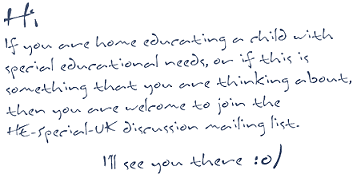 Hi,
If you are home educating a child with
special educational needs, or if this is
something that you are thinking about,
then you are welcome to join the
HE-Special-UK discussion mailing list.
I'll see you there :o)